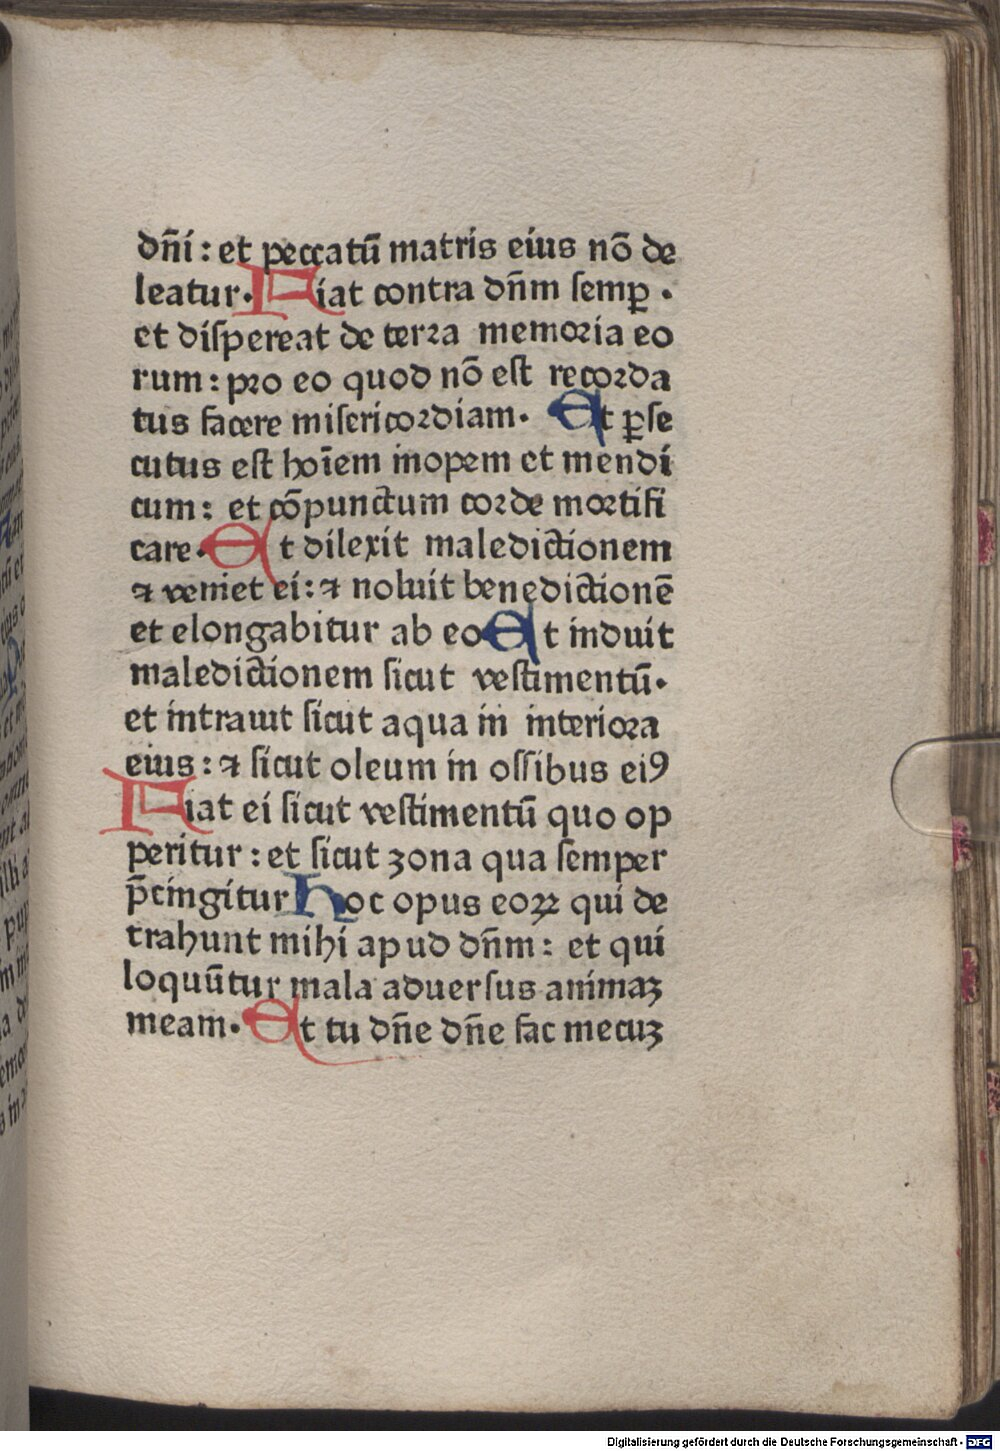 dn̄i : et peccatū matris eius nō de
leatur. Fiat contra dn̄m semꝑ .
et dispereat de terra memoria eo
rum : pro eo quod nō est recorda
tus facere misericordiam. Et ꝑse
cutus est hoīem inopem et mendi
cum : et cōpunctum corde mortifi
care. Et dilexit maledictionem
⁊ veniet ei : ⁊ noluit benedictionē
et elongabitur ab eo Et induit
maledictionem sicut vestimentū.
et intrauit sicut aqua in interiora
eius : ⁊ sicut oleum in ossibus eiꝯ
Fiat ei sicut vestimentū quo op
peritur : et sicut zona qua semper
p̄cingitur Hoc opus eoꝝ qui de
trahunt mihi apud dn̄m : et qui
loquūtur mala aduersus animaꝫ
meam. Et tu dn̄e dn̄e fac mecuꝫ
Digitalisierung gefördert durch die Deutsche Forschungsgemeinschaft - DFG